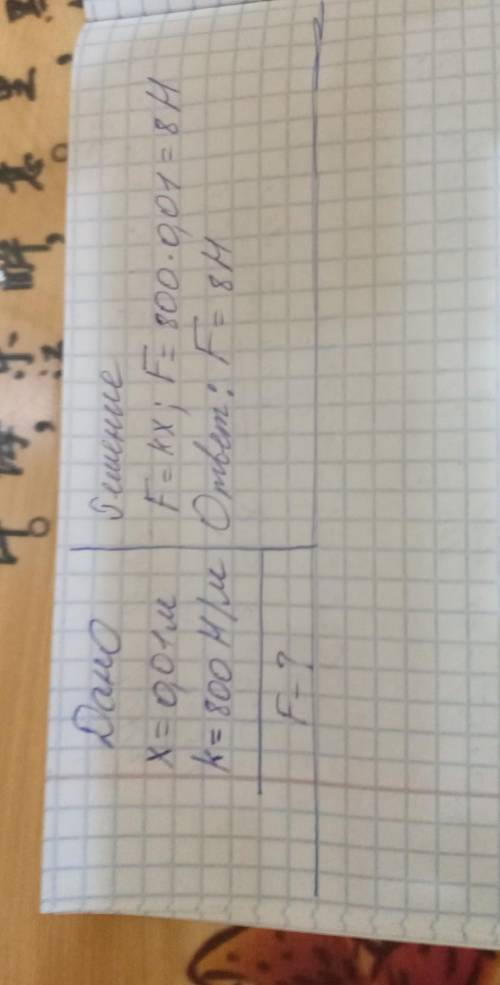 Дано
x = 0,01 м
k = 800 Н/м
F - ?
Решение
F = kx; F = 800 · 0,01 = 8 Н
Ответ: F = 8 Н
里，
意。
解，